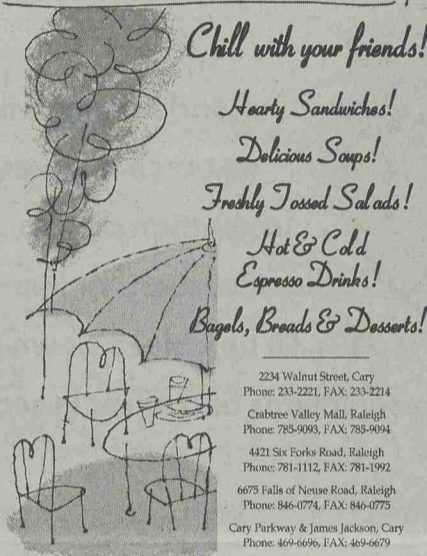 Chill with your friends!
Hearty Sandwiches!
Delicious Soups!
Freshly Tossed Salads!
Hot & Cold
Espresso Drinks!
Bagels, Breads & Desserts!
2234 Walnut Street, Cary
Phone: 233-2221, FAX: 233-2214
Crabtree Valley Mall, Raleigh
Phone: 785-9093, FAX: 785-9094
4421 Six Forks Road, Raleigh
Phone: 781-1112, FAX: 781-1992
6675 Falls of Neuse Road, Raleigh
Phone: 846-0774, FAX: 846-0775
Cary Parkway & James Jackson, Cary
Phone: 469-6696, FAX: 469-6679